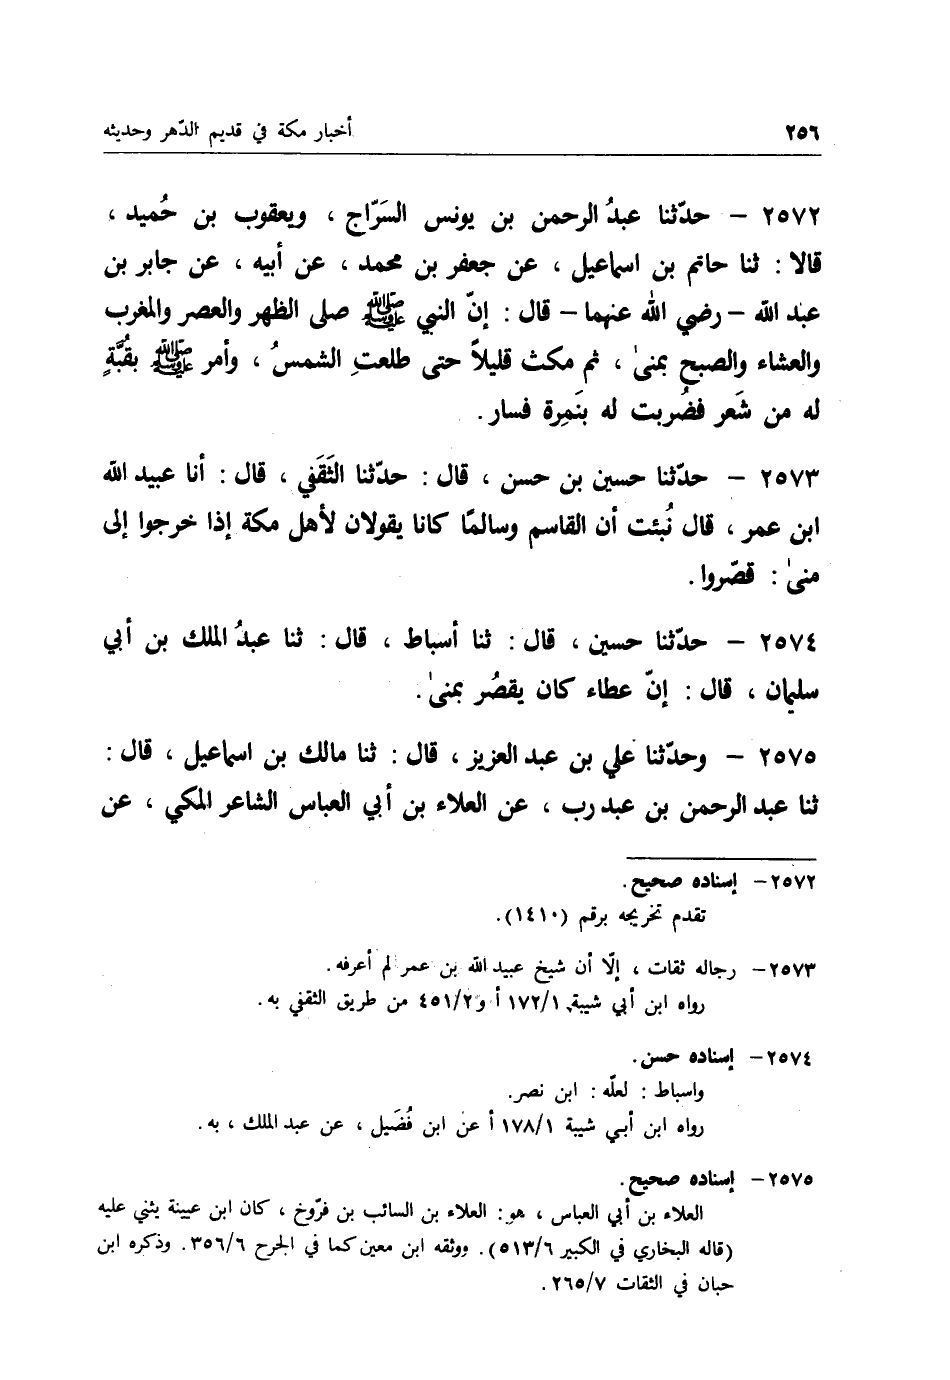 ٢٥٦
أخبار مكة في قديم الدّهر وحديثه
٢٥٧٢ – حدّثنا عبدُ الرحمن بن يونس السَرّاج ، ويعقوب بن حُميد ،
قالا : ثنا حاتم بن اسماعيل ، عن جعفر بن محمد ، عن أبيه ، عن جابر بن
عبد الله – رضي الله عنهما – قال : إنّ النبي ﷺ صلى الظهر والعصر والمغرب
والعشاء والصبح بمنىٰ ، ثم مكث قليلاً حتى طلعتِ الشمسُ ، وأمر ﷺ بقُبَّةٍ
له من شَعر فضُربت له بنَمِرة فسار .
٢٥٧٣ – حدّثنا حسين بن حسن ، قال : حدّثنا الثَقَفي ، قال : أنا عبيد الله
ابن عمر ، قال نُبئت أن القاسم وسالمًا كانا يقولان لأهل مكة إذا خرجوا إلى
منىٰ : قصّروا .
٢٥٧٤ – حدّثنا حسين ، قال : ثنا أسباط ، قال : ثنا عبدُ الملك بن أبي
سليمان ، قال : إنّ عطاء كان يقصُر بمنىٰ .
٢٥٧٥ – وحدّثنا علي بن عبد العزيز ، قال : ثنا مالك بن اسماعيل ، قال :
ثنا عبد الرحمن بن عبد رب ، عن العلاء بن أبي العباس الشاعر المكي ، عن
٢٥٧٢– إسناده صحيح .
تقدم تخريجه برقم (١٤١٠) .
٢٥٧٣– رجاله ثقات ، إلّا أن شيخ عبيد الله بن عمر لم أعرفه .
رواه ابن أبي شيبة ١٧٢/١ أ و٤٥١/٢ من طريق الثقفي به .
٢٥٧٤– إسناده حسن .
واسباط : لعلّه : ابن نصر .
رواه ابن أبي شيبة ١٧٨/١ أ عن ابن فُضَيل ، عن عبد الملك ، به .
٢٥٧٥– إسناده صحيح .
العلاء بن أبي العباس ، هو : العلاء بن السائب بن فرّوخ ، كان ابن عيينة يثني عليه
(قاله البخاري في الكبير ٥١٣/٦) . ووثقه ابن معين كما في الجرح ٣٥٦/٦ . وذكره ابن
حبان في الثقات ٢٦٥/٧ .